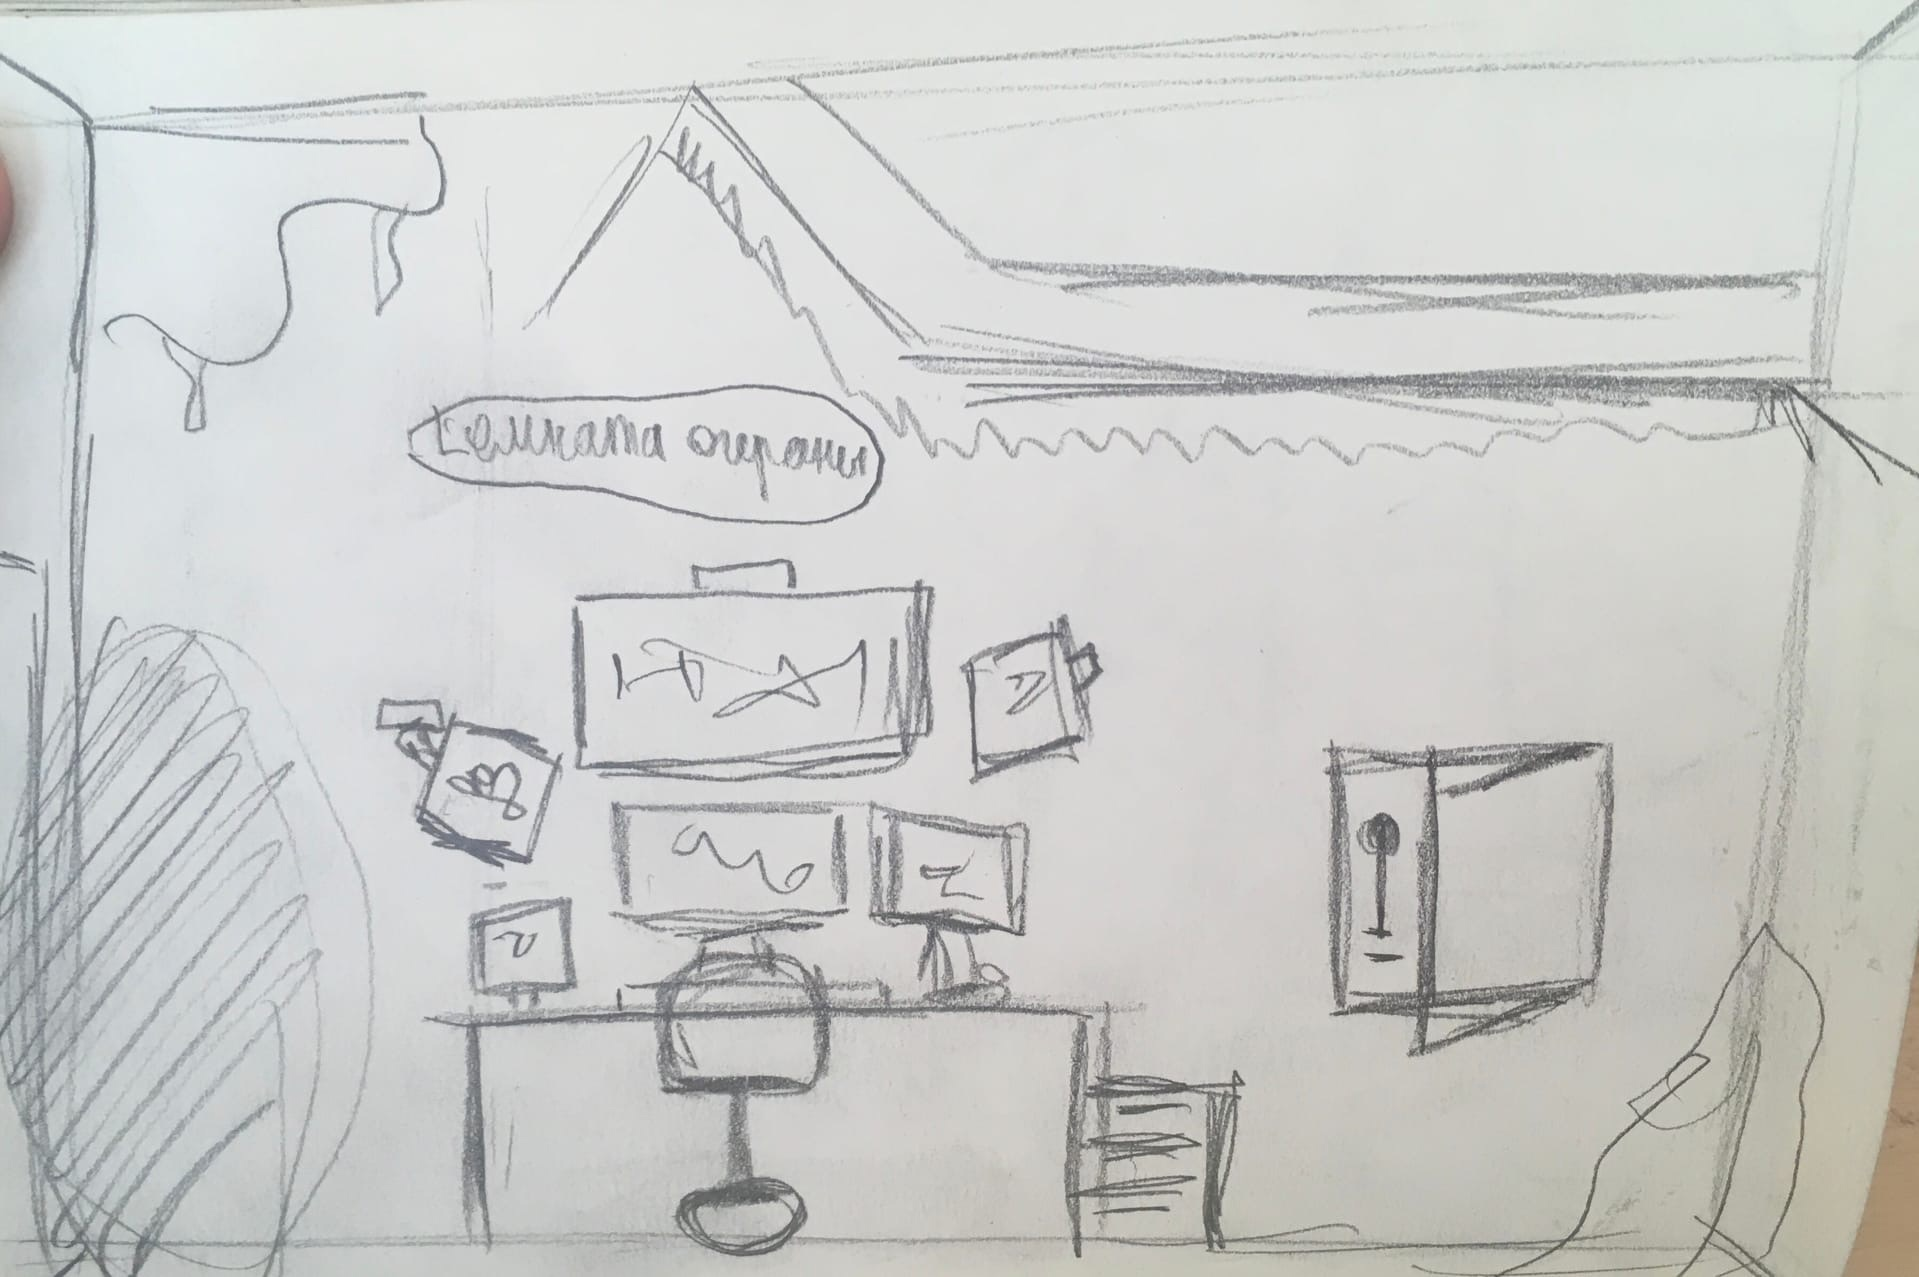 комната охраны